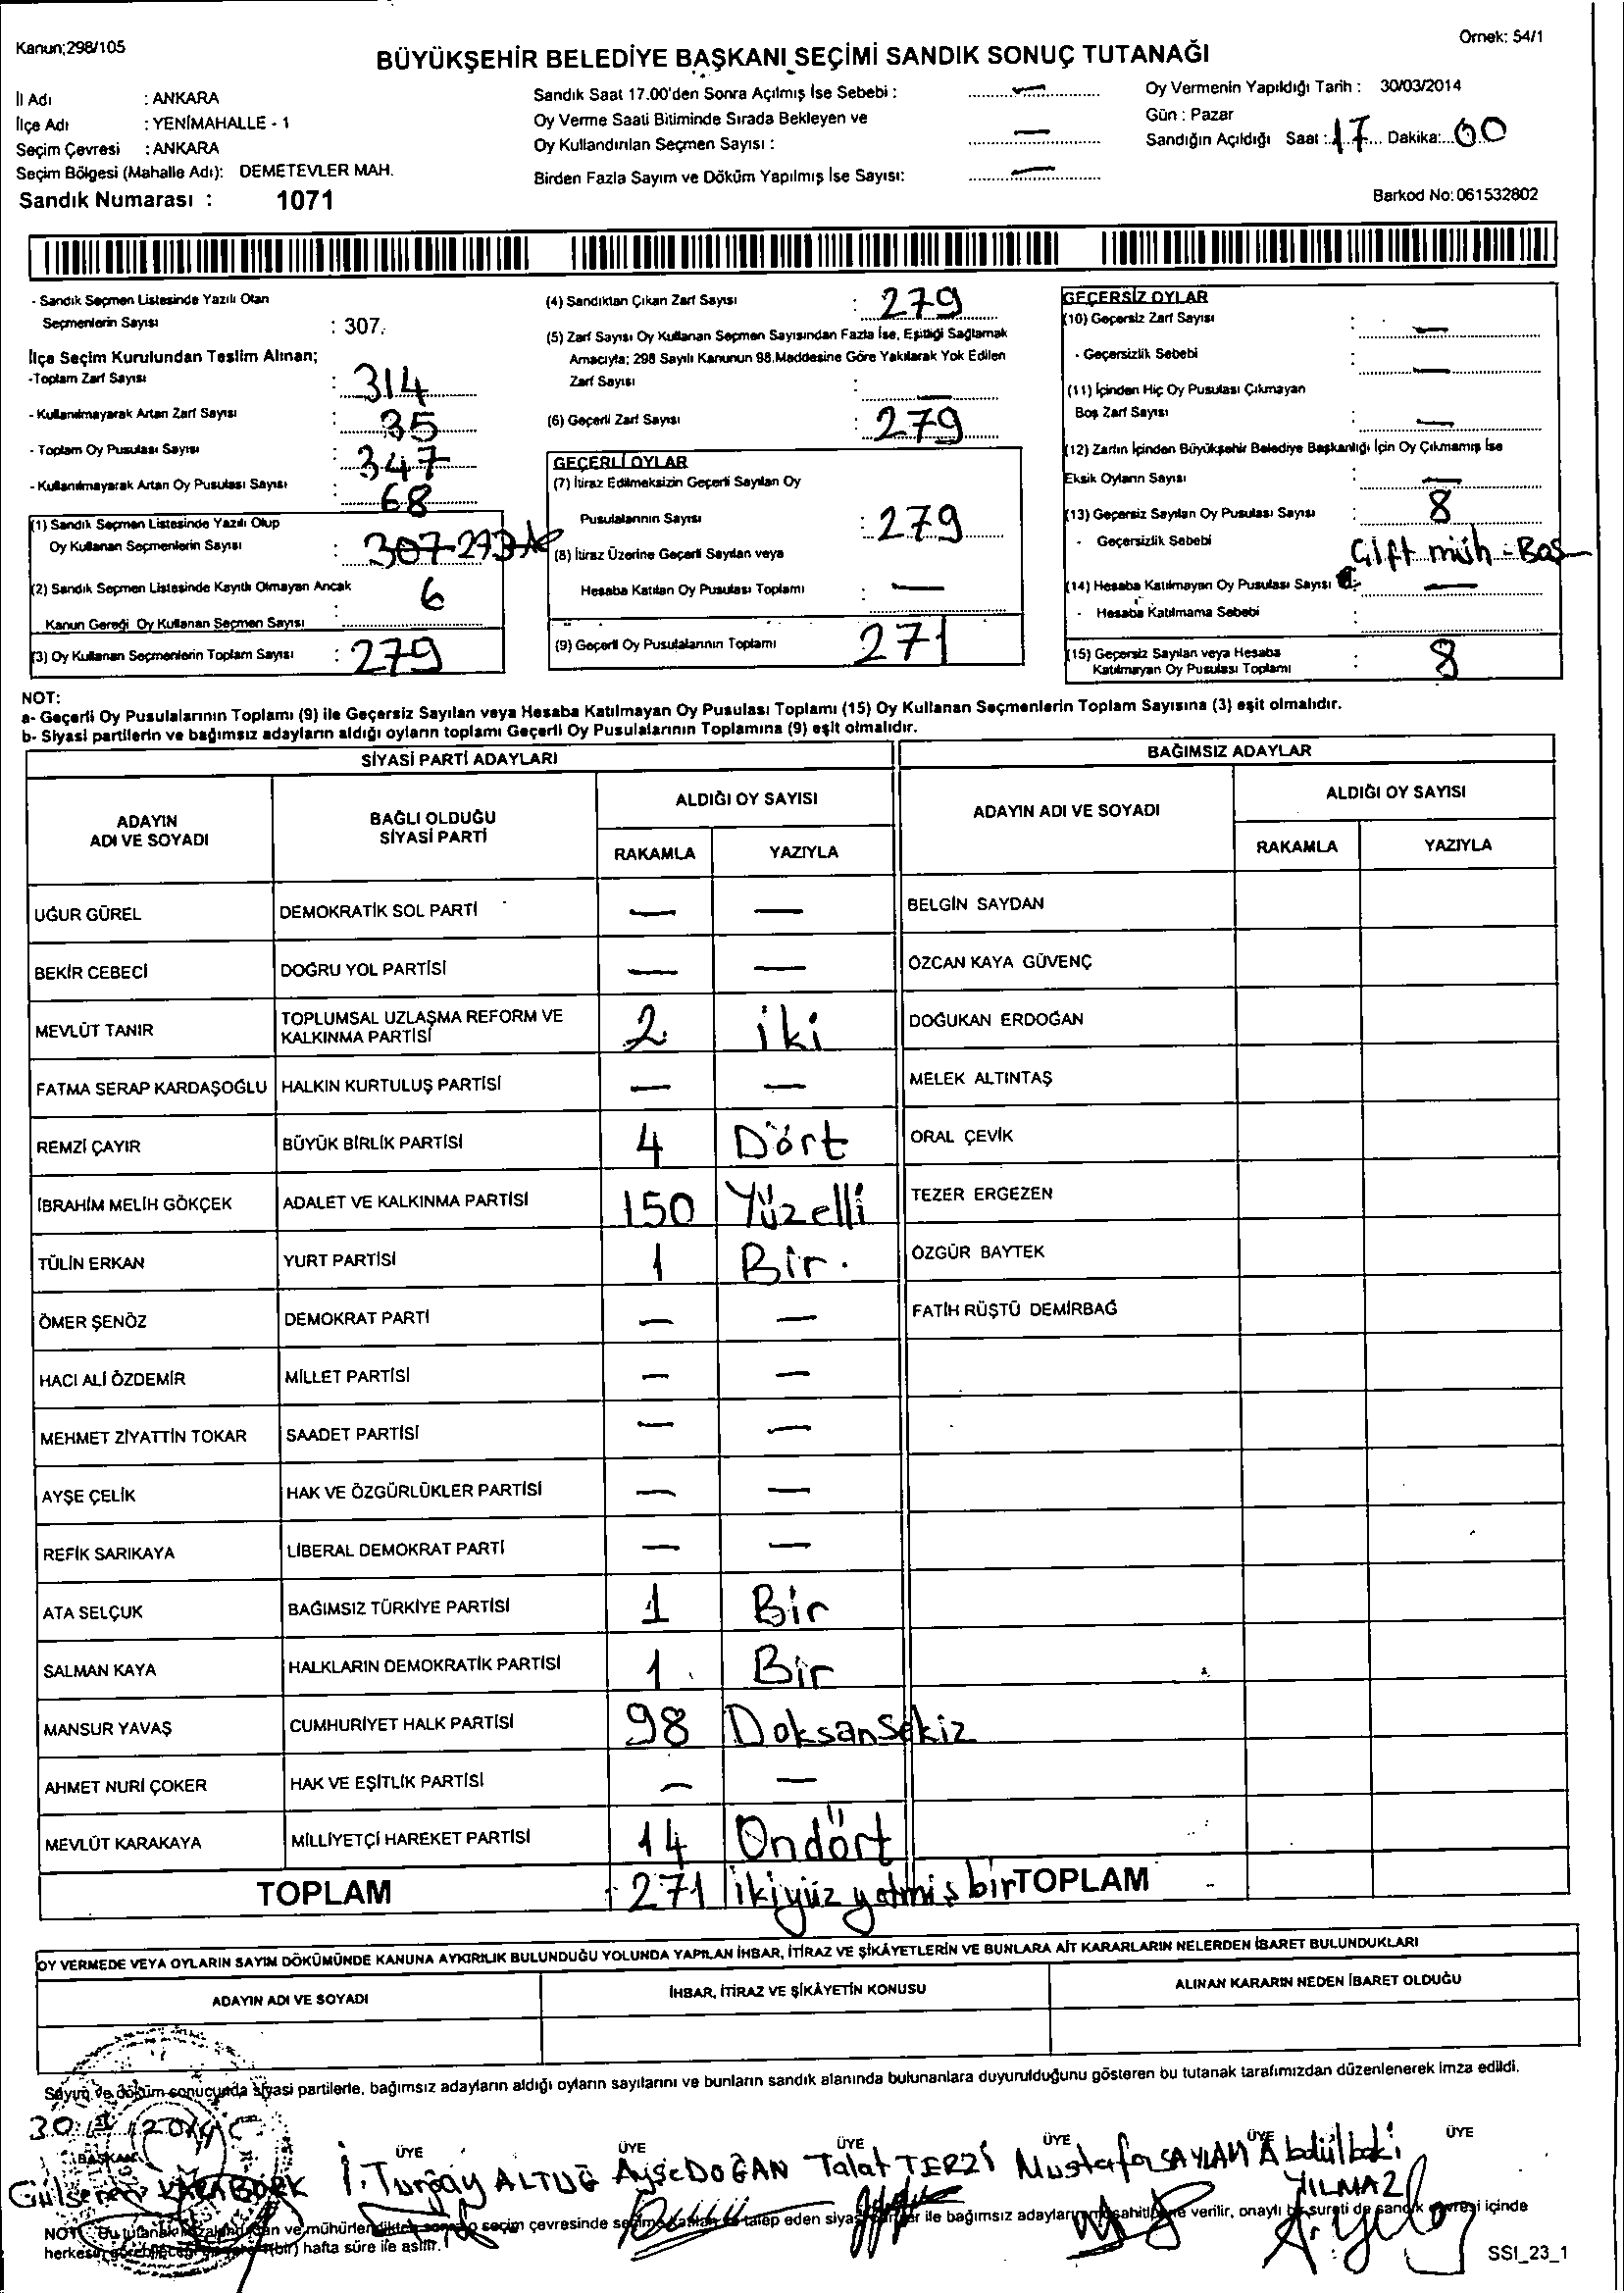 Kanun;298/105
Örnek: 54/1
BÜYÜKŞEHİR BELEDİYE BAŞKANI SEÇİMİ SANDIK SONUÇ TUTANAĞI
İl Adı : ANKARA
İlçe Adı : YENİMAHALLE - 1
Seçim Çevresi : ANKARA
Seçim Bölgesi (Mahalle Adı): DEMETEVLER MAH.
Sandık Numarası : 1071
Sandık Saat 17.00'den Sonra Açılmış İse Sebebi : —
Oy Verme Saati Bitiminde Sırada Bekleyen ve
Oy Kullandırılan Seçmen Sayısı : —
Birden Fazla Sayım ve Döküm Yapılmış İse Sayısı: —
Oy Vermenin Yapıldığı Tarih : 30/03/2014
Gün : Pazar
Sandığın Açıldığı Saat : 17 Dakika: 00
Barkod No: 061532802
- Sandık Seçmen Listesinde Yazılı Olan
Seçmenlerin Sayısı : 307.
İlçe Seçim Kurulundan Teslim Alınan;
-Toplam Zarf Sayısı : 314
- Kullanılmayarak Artan Zarf Sayısı : 35
- Toplam Oy Pusulası Sayısı : 347
- Kullanılmayarak Artan Oy Pusulası Sayısı : 68
(1) Sandık Seçmen Listesinde Yazılı Olup
Oy Kullanan Seçmenlerin Sayısı : 307-273
(2) Sandık Seçmen Listesinde Kayıtlı Olmayan Ancak
Kanun Gereği Oy Kullanan Seçmen Sayısı : 6
(3) Oy Kullanan Seçmenlerin Toplam Sayısı : 279
(4) Sandıktan Çıkan Zarf Sayısı : 279
(5) Zarf Sayısı Oy Kullanan Seçmen Sayısından Fazla İse, Eşitliği Sağlamak
Amacıyla; 298 Sayılı Kanunun 98.Maddesine Göre Yakılarak Yok Edilen
Zarf Sayısı : —
(6) Geçerli Zarf Sayısı : 279
GEÇERLİ OYLAR
(7) İtiraz Edilmeksizin Geçerli Sayılan Oy
Pusulalarının Sayısı : 279
(8) İtiraz Üzerine Geçerli Sayılan veya
Hesaba Katılan Oy Pusulası Toplamı : —
(9) Geçerli Oy Pusulalarının Toplamı 271
GEÇERSİZ OYLAR
(10) Geçersiz Zarf Sayısı : —
- Geçersizlik Sebebi : —
(11) İçinden Hiç Oy Pusulası Çıkmayan
Boş Zarf Sayısı : —
(12) Zarfın İçinden Büyükşehir Belediye Başkanlığı İçin Oy Çıkmamış İse
Eksik Oyların Sayısı —
(13) Geçersiz Sayılan Oy Pusulası Sayısı : 8
- Geçersizlik Sebebi Çift müh - Boş
(14) Hesaba Katılmayan Oy Pusulası Sayısı : —
- Hesaba Katılmama Sebebi :
(15) Geçersiz Sayılan veya Hesaba
Katılmayan Oy Pusulası Toplamı : 8
NOT:
a- Geçerli Oy Pusulalarının Toplamı (9) ile Geçersiz Sayılan veya Hesaba Katılmayan Oy Pusulası Toplamı (15) Oy Kullanan Seçmenlerin Toplam Sayısına (3) eşit olmalıdır.
b- Siyasi partilerin ve bağımsız adayların aldığı oyların toplamı Geçerli Oy Pusulalarının Toplamına (9) eşit olmalıdır.
SİYASİ PARTİ ADAYLARI BAĞIMSIZ ADAYLAR
ADAYIN ADI VE SOYADI BAĞLI OLDUĞU SİYASİ PARTİ ALDIĞI OY SAYISI ADAYIN ADI VE SOYADI ALDIĞI OY SAYISI
RAKAMLA YAZIYLA RAKAMLA YAZIYLA
UĞUR GÜREL DEMOKRATİK SOL PARTİ — — BELGİN SAYDAN
BEKİR CEBECİ DOĞRU YOL PARTİSİ — — ÖZCAN KAYA GÜVENÇ
MEVLÜT TANIR TOPLUMSAL UZLAŞMA REFORM VE KALKINMA PARTİSİ 2 iki DOĞUKAN ERDOĞAN
FATMA SERAP KARDAŞOĞLU HALKIN KURTULUŞ PARTİSİ — — MELEK ALTINTAŞ
REMZİ ÇAYIR BÜYÜK BİRLİK PARTİSİ 4 Dört ORAL ÇEVİK
İBRAHİM MELİH GÖKÇEK ADALET VE KALKINMA PARTİSİ 150 Yüzelli TEZER ERGEZEN
TÜLİN ERKAN YURT PARTİSİ 1 Bir. ÖZGÜR BAYTEK
ÖMER ŞENÖZ DEMOKRAT PARTİ — — FATİH RÜŞTÜ DEMİRBAĞ
HACI ALİ ÖZDEMİR MİLLET PARTİSİ — —
MEHMET ZİYATTİN TOKAR SAADET PARTİSİ — —
AYŞE ÇELİK HAK VE ÖZGÜRLÜKLER PARTİSİ — —
REFİK SARIKAYA LİBERAL DEMOKRAT PARTİ — —
ATA SELÇUK BAĞIMSIZ TÜRKİYE PARTİSİ 1 Bir
SALMAN KAYA HALKLARIN DEMOKRATİK PARTİSİ 1 Bir
MANSUR YAVAŞ CUMHURİYET HALK PARTİSİ 98 Doksansekiz
AHMET NURİ ÇOKER HAK VE EŞİTLİK PARTİSİ — —
MEVLÜT KARAKAYA MİLLİYETÇİ HAREKET PARTİSİ 14 Ondört
TOPLAM 271 ikiyüz yetmiş bir TOPLAM
OY VERMEDE VEYA OYLARIN SAYIM DÖKÜMÜNDE KANUNA AYKIRILIK BULUNDUĞU YOLUNDA YAPILAN İHBAR, İTİRAZ VE ŞİKÂYETLERİN VE BUNLARA AİT KARARLARIN NELERDEN İBARET BULUNDUKLARI
ADAYIN ADI VE SOYADI İHBAR, İTİRAZ VE ŞİKÂYETİN KONUSU ALINAN KARARIN NEDEN İBARET OLDUĞU
Sayım ve döküm sonucunda siyasi partilerle, bağımsız adayların aldığı oyların sayılarını ve bunların sandık alanında bulunanlara duyurulduğunu gösteren bu tutanak tarafımızdan düzenlenerek imza edildi.
30 / 3 / 2014
BAŞKAN ÜYE ÜYE ÜYE ÜYE ÜYE ÜYE
Gülseren KARABÖRK İ. Turgay ALTUĞ Ayşe DOĞAN Talat TERZİ Mustafa SAYLAM Abdülbaki YILMAZ
NOT: Bu tutanak ve mühürlendikten sonra seçim çevresinde seçime katılan ve talep eden siyasi partiler ile bağımsız adayların müşahitlerine verilir, onaylı bir sureti de sandık çevresi içinde
herkesin (bir) hafta süre ile asılır.
SSI_23_1